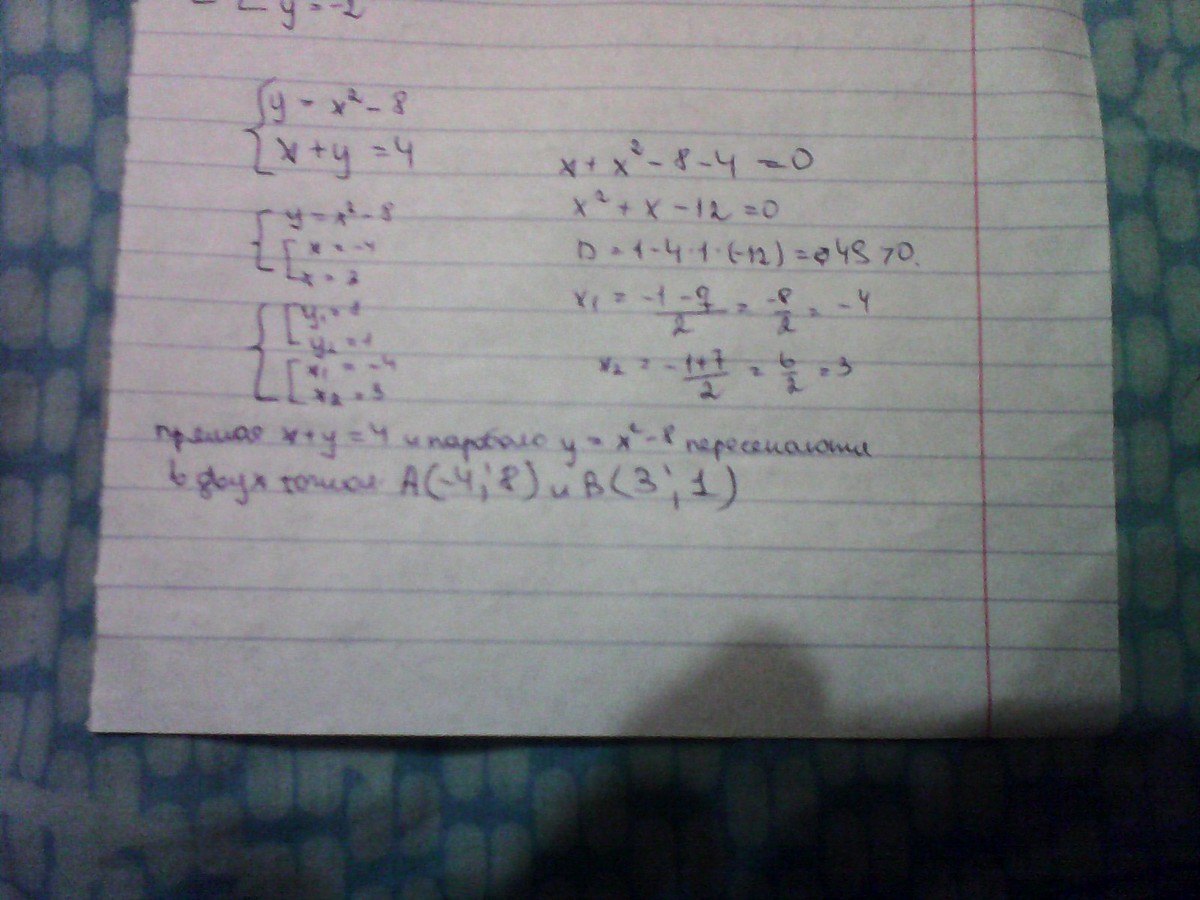 y = -2
y = x² - 8
x + y = 4
x + x² - 8 - 4 = 0
x² + x - 12 = 0
D = 1 - 4 · 1 · (-12) = 49 > 0.
y = x² - 8
x = -4
x = 3
x₁ = (-1 - 7)/2 = -8/2 = -4
y₁ = 8
y₂ = 1
x₁ = -4
x₂ = 3
x₂ = (-1+7)/2 = 6/2 = 3
прямая x + y = 4 и парабола y = x² - 8 пересекаются
в двух точках A(-4; 8) и B(3; 1)